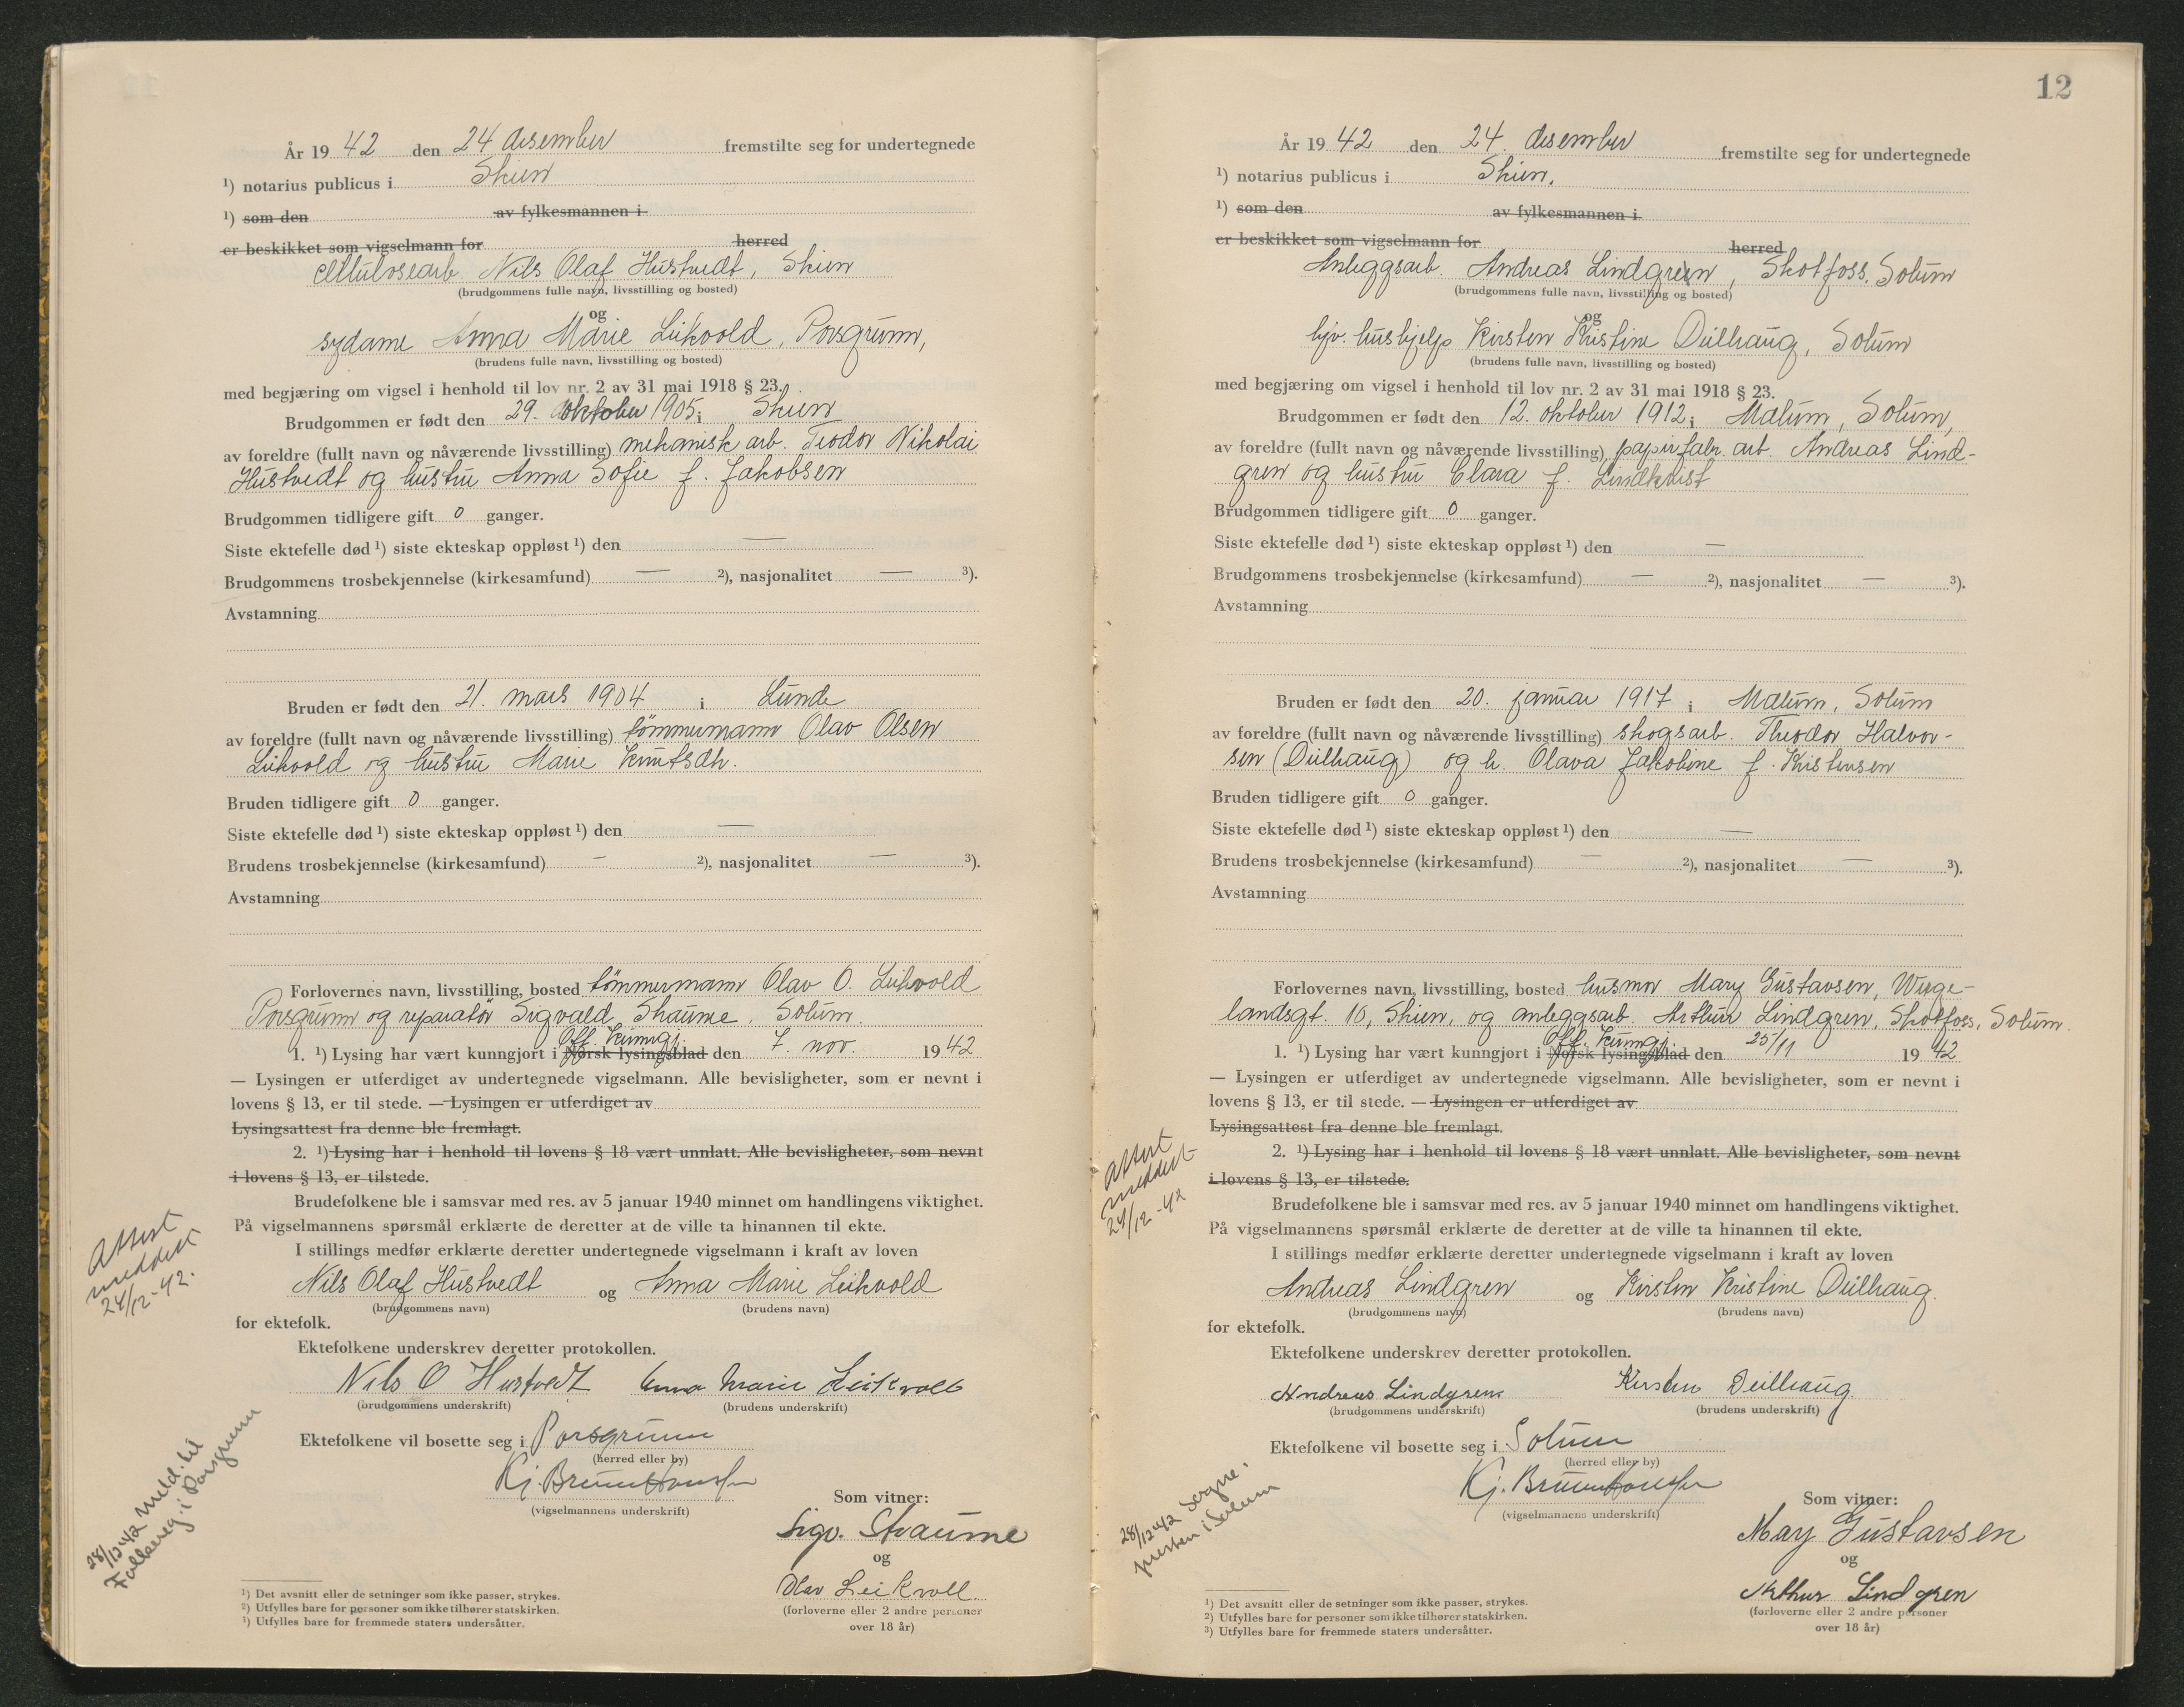 År 1942 den 24 desember fremstilte seg for undertegnede
¹) notarius publicus i Skien
¹) som den av fylkesmannen i
er beskikket som vigselmann for herred
cellulosearb. Nils Olaf Hustvedt, Skien
(brudgommens fulle navn, livsstilling og bosted)
og
sydame Anna Marie Leikvold, Porsgrunn,
(brudens fulle navn, livsstilling og bosted)
med begjæring om vigsel i henhold til lov nr. 2 av 31 mai 1918 § 23.
Brudgommen er født den 29. oktober 1905 i Skien
av foreldre (fullt navn og nåværende livsstilling) mekanisk arb. Teodor Nikolai
Hustvedt og hustru Anna Sofie f. Jakobsen
Brudgommen tidligere gift 0 ganger.
Siste ektefelle død ¹) siste ekteskap oppløst ¹) den —
Brudgommens trosbekjennelse (kirkesamfund) — ²), nasjonalitet — ³).
Avstamning
Bruden er født den 21. mars 1904 i Lunde
av foreldre (fullt navn og nåværende livsstilling) tömmermann Olav Olsen
Leikvold og hustru Marie Knutsdtr.
Bruden tidligere gift 0 ganger.
Siste ektefelle død ¹) siste ekteskap oppløst ¹) den —
Brudens trosbekjennelse (kirkesamfund) — ²), nasjonalitet — ³).
Avstamning
Forlovernes navn, livsstilling, bosted tömmermann Olav O. Leikvold
Porsgrunn og reparatör Sigvald Straume, Solum.
Off. Kunngj.
1. ¹) Lysing har vært kunngjort i Norsk lysingsblad den 7. nov. 1942
— Lysingen er utferdiget av undertegnede vigselmann. Alle bevisligheter, som er nevnt i
lovens § 13, er til stede. — Lysingen er utferdiget av
Lysingsattest fra denne ble fremlagt.
2. ¹) Lysing har i henhold til lovens § 18 vært unnlatt. Alle bevisligheter, som nevnt
i lovens § 13, er tilstede.
Brudefolkene ble i samsvar med res. av 5 januar 1940 minnet om handlingens viktighet.
På vigselmannens spørsmål erklærte de deretter at de ville ta hinannen til ekte.
I stillings medfør erklærte deretter undertegnede vigselmann i kraft av loven
Nils Olaf Hustvedt og Anna Marie Leikvold
(brudgommens navn) (brudens navn)
for ektefolk.
Ektefolkene underskrev deretter protokollen.
Nils O Hustvedt Anna Marie Leikvoll
(brudgommens underskrift) (brudens underskrift)
Ektefolkene vil bosette seg i Porsgrunn
(herred eller by)
Kj. Bruun Hanssen
(vigselmannens underskrift)
Som vitner:
Sigv. Straume
og
Olav Leikvoll.
(forloverne eller 2 andre personer
over 18 år)
Attest
meddelt
24/12-42.
28/12 42 meld. til
Folkereg i Porsgrunn
¹) Det avsnitt eller de setninger som ikke passer, strykes.
²) Utfylles bare for personer som ikke tilhører statskirken.
³) Utfylles bare for fremmede staters undersåtter.
12
År 1942 den 24. desember fremstilte seg for undertegnede
¹) notarius publicus i Skien.
¹) som den av fylkesmannen i
er beskikket som vigselmann for herred
Anleggsarb. Andreas Lindgren, Skotfoss, Solum
(brudgommens fulle navn, livsstilling og bosted)
og
hjv. hushjelp Kirsten Kristine Dülhaug, Solum
(brudens fulle navn, livsstilling og bosted)
med begjæring om vigsel i henhold til lov nr. 2 av 31 mai 1918 § 23.
Brudgommen er født den 12. oktober 1912 i Mælum, Solum,
av foreldre (fullt navn og nåværende livsstilling) papirfabr. arb. Andreas Lind-
gren og hustru Clara f. Lindkvist
Brudgommen tidligere gift 0 ganger.
Siste ektefelle død ¹) siste ekteskap oppløst ¹) den —
Brudgommens trosbekjennelse (kirkesamfund) — ²), nasjonalitet — ³).
Avstamning
Bruden er født den 20. januar 1917 i Mælum, Solum
av foreldre (fullt navn og nåværende livsstilling) skogsarb. Theodor Halvor-
sen (Dülhaug) og h. Olava Jakobine f. Kristensen
Bruden tidligere gift 0 ganger.
Siste ektefelle død ¹) siste ekteskap oppløst ¹) den —
Brudens trosbekjennelse (kirkesamfund) — ²), nasjonalitet — ³).
Avstamning
Forlovernes navn, livsstilling, bosted husmor Mary Gustavsen, Werge-
landsgt. 10, Skien, og anleggsarb. Arthur Lindgren, Skotfoss, Solum.
Off. Kunngj.
1. ¹) Lysing har vært kunngjort i Norsk lysingsblad den 25/11 1942
— Lysingen er utferdiget av undertegnede vigselmann. Alle bevisligheter, som er nevnt i
lovens § 13, er til stede. — Lysingen er utferdiget av
Lysingsattest fra denne ble fremlagt.
2. ¹) Lysing har i henhold til lovens § 18 vært unnlatt. Alle bevisligheter, som nevnt
i lovens § 13, er tilstede.
Brudefolkene ble i samsvar med res. av 5 januar 1940 minnet om handlingens viktighet.
På vigselmannens spørsmål erklærte de deretter at de ville ta hinannen til ekte.
I stillings medfør erklærte deretter undertegnede vigselmann i kraft av loven
Andreas Lindgren og Kirsten Kristine Dülhaug.
(brudgommens navn) (brudens navn)
for ektefolk.
Ektefolkene underskrev deretter protokollen.
Andreas Lindgren Kirsten Dülhaug
(brudgommens underskrift) (brudens underskrift)
Ektefolkene vil bosette seg i Solum
(herred eller by)
Kj. Bruun Hanssen
(vigselmannens underskrift)
Som vitner:
Mary Gustavsen
og
Arthur Lindgren
(forloverne eller 2 andre personer
over 18 år)
Attest
meddelt
24/12-42
28/12 42 sogne.
presten i Solum
¹) Det avsnitt eller de setninger som ikke passer, strykes.
²) Utfylles bare for personer som ikke tilhører statskirken.
³) Utfylles bare for fremmede staters undersåtter.